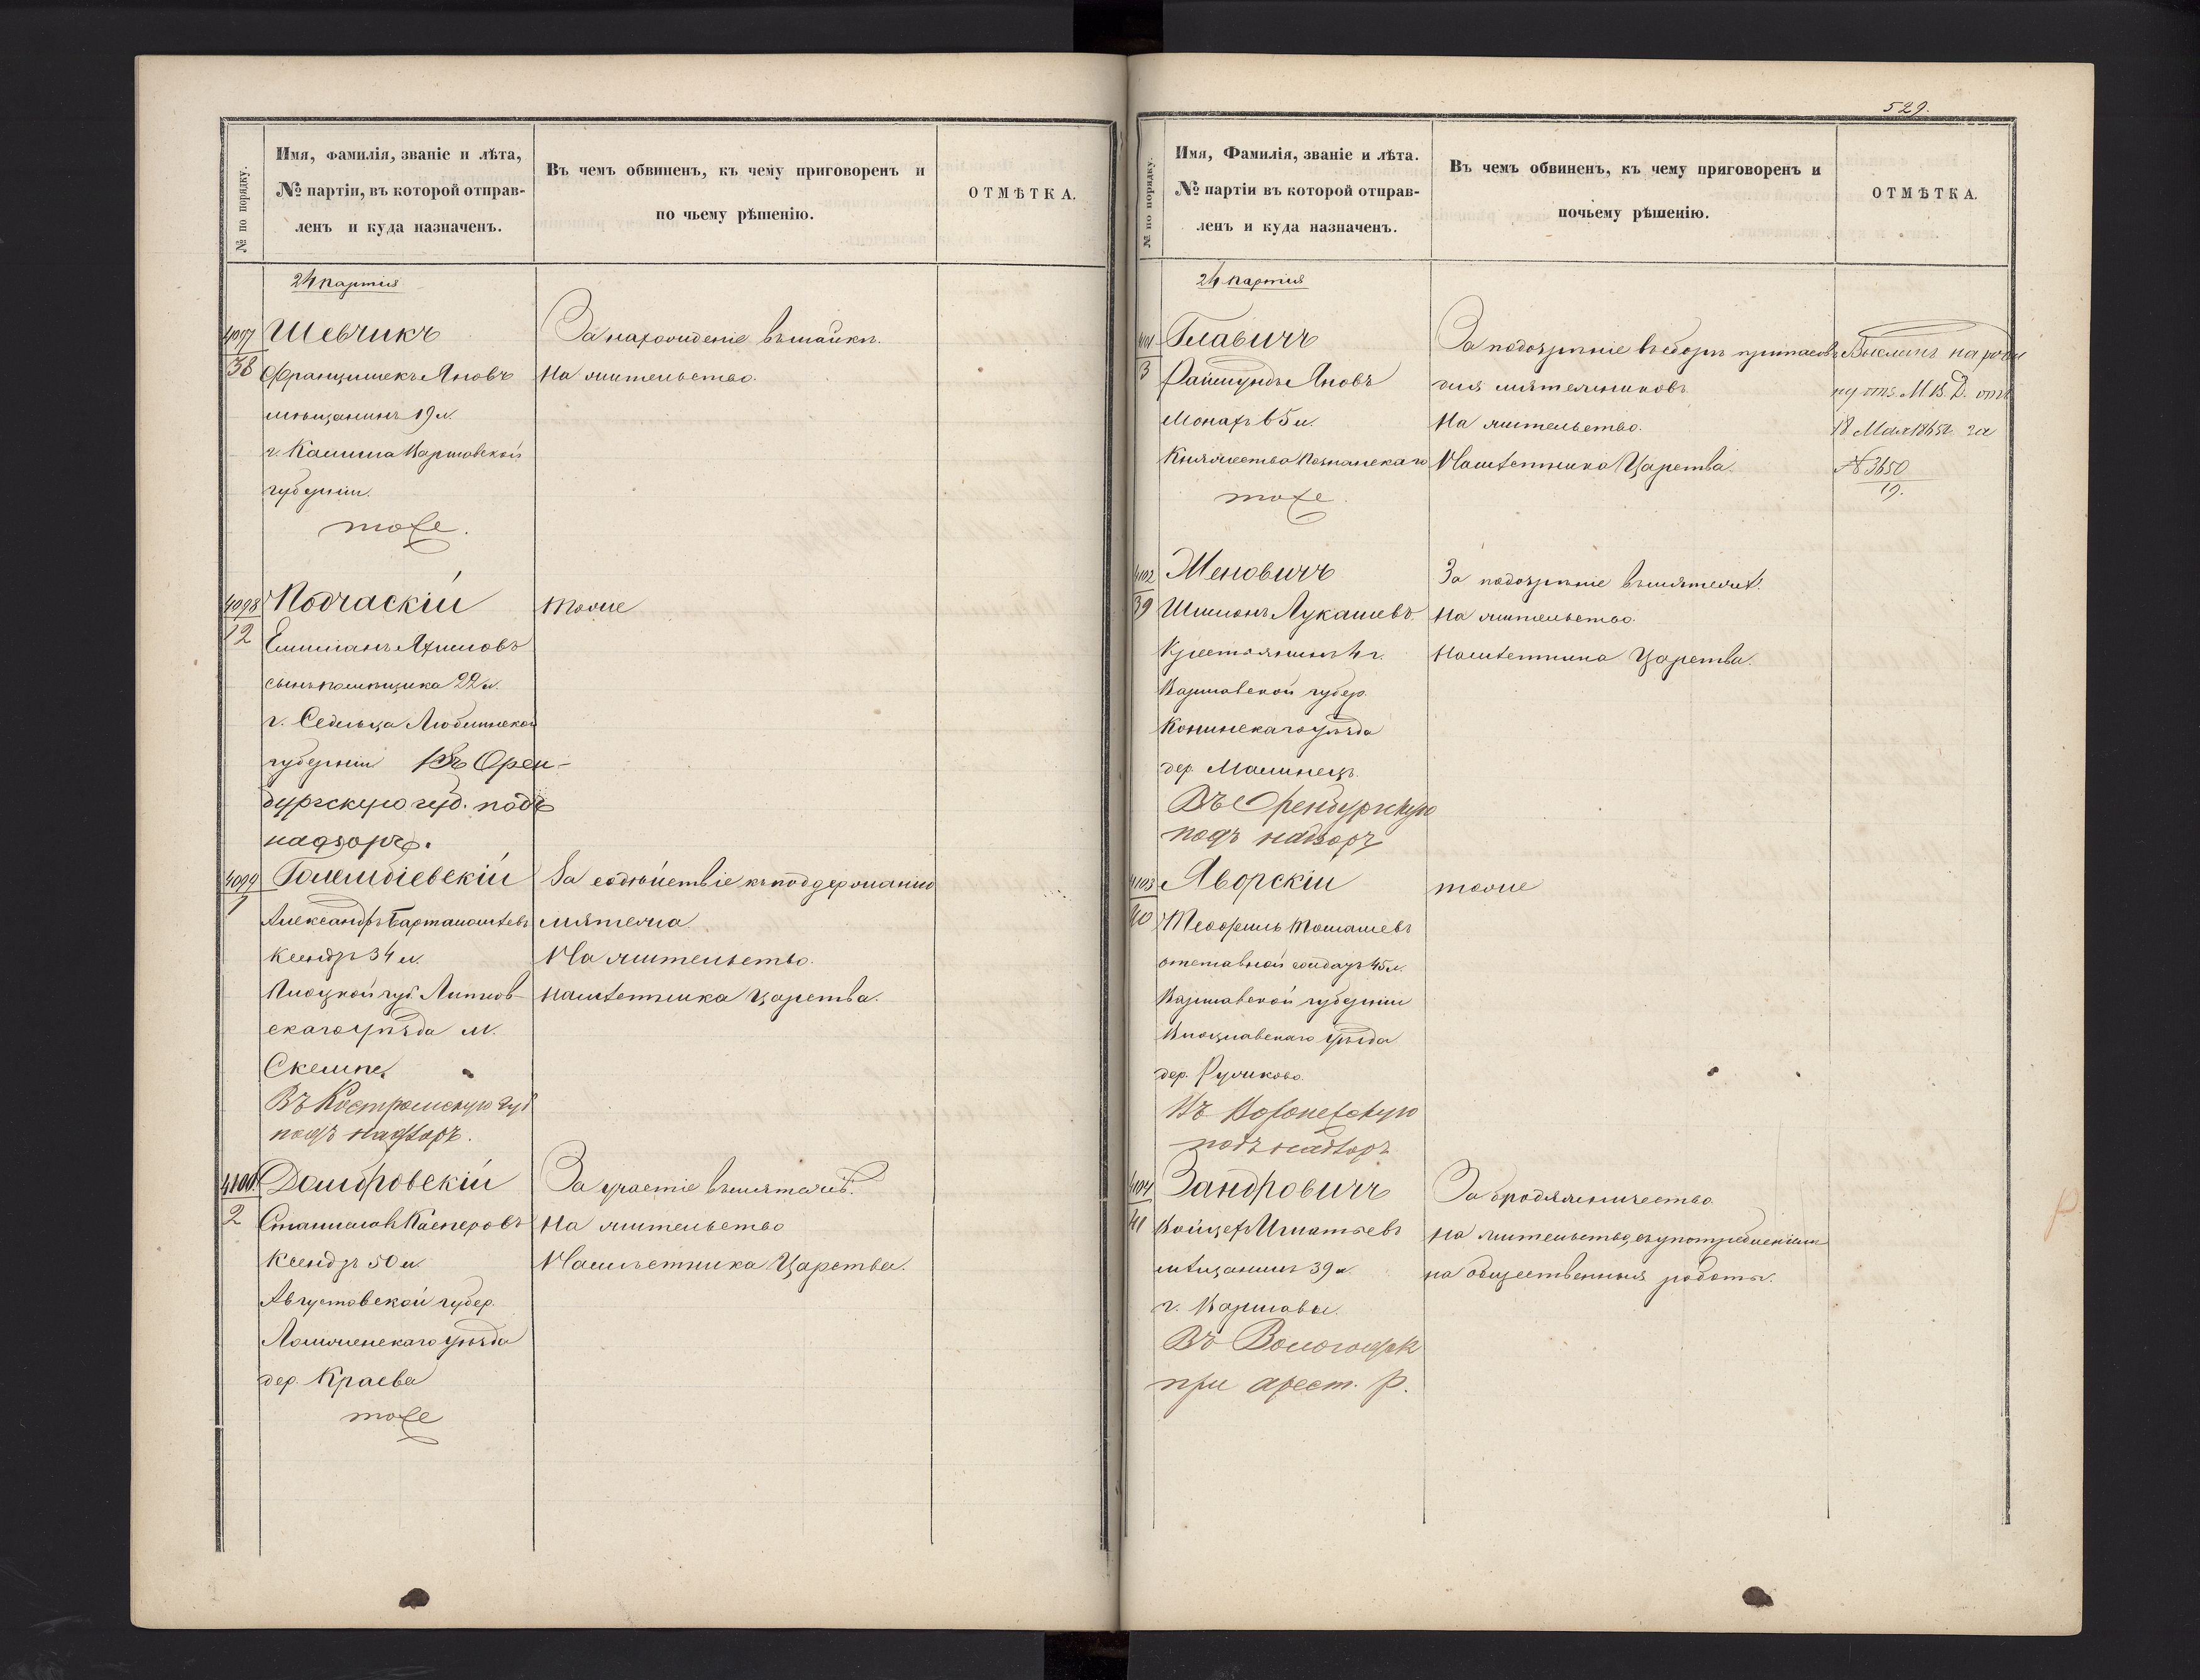 529.
№ по порядку.
Имя, Фамилія, званіе и лѣта,
№ партіи, въ которой отправ-
ленъ и куда назначенъ.
Въ чемъ обвиненъ, къ чему приговоренъ и
по чьему рѣшенію.
ОТМѢТКА.
24 партія
4097
38
Шевчикъ
Францишекъ Яновъ
мѣщанинъ 19 л.
г. Калиша Варшавской
губерніи.
тоже.
За нахожденіе въ шайкѣ.
На жительство.
4098
12
Подчаскій
сынъ помѣщика 22 л.
г. Седльца Люблинской
губерніи Въ Орен-
бургскую губ. подъ
надзоръ.
тоже
4099
1
Голембіевскій
Александръ
ксендзъ 34 л.
Плоцкой губ. Липнов-
скаго уѣзда м.
Скемпе
Въ Костромскую губ
подъ надзоръ.
За содѣйствіе къ поддержанію
мятежа.
На жительство.
Намѣстника Царства.
4100
2
Домбровскій
Станиславъ Касперовъ
Ксендзъ 50 л.
Августовской губер.
Ломженскаго уѣзда
дер. Краева
тоже
За участіе въ мятежѣ.
На жительство
Намѣстника Царства.
№ по порядку.
Имя, Фамилія, званіе и лѣта.
№ партіи въ которой отправ-
ленъ и куда назначенъ.
Въ чемъ обвиненъ, къ чему приговоренъ и
почьему рѣшенію.
ОТМѢТКА.
24 партія
4101
3
Главичъ
Раймундъ Яновъ
Монахъ 65 л.
Княжества Познанскаго
тоже.
За подозрѣніе въ сборѣ припасовъ
для мятежниковъ.
На жительство.
Намѣстника Царства.
Высланъ на роди
ну отз. М.В.Д. отъ
18 Мая 1865 г. за
№ 3650
19.
4102
39
Женовичъ
Шимонъ Лукашевъ
Варшавской губер.
Конинскаго уѣзда
дер. Малинецъ.
Въ Оренбургскую
подъ надзоръ
За подозрѣніе въ мятежѣ.
На жительство.
Намѣстника Царства.
4103
40
Яворскій
Теофиль Томашевъ
отставной солдатъ 45 л.
Варшавской губерніи
Влоцлавскаго уѣзда
дер. Рушково.
Въ Воронежскую
подъ надзоръ
тоже
4104
41
Зандровичъ
Войцехъ Игнатьевъ
мѣщанинъ 39 л.
г. Варшавы.
Въ Вологодск
при арест. р.
За бродяжничество
на жительство, съ употребленіемъ
на общественныя работы.
р